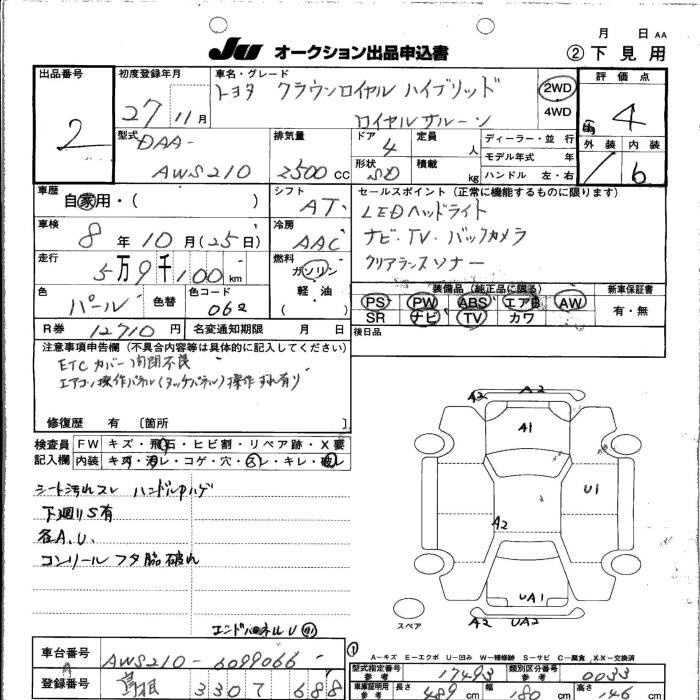 月 日 AA
JU オークション出品申込書 ②下見用
出品番号 初度登録年月 車名・グレード 評価点
2 27年 11月 トヨタ クラウンロイヤル ハイブリッド 2WD 4
ロイヤルサルーン 4WD
型式 排気量 ドア 定員 ディーラー・並行 外装 内装
DAA- 4 人 モデル年式 年
AWS210 2500 CC 形状 SD 積載 kg ハンドル 左・右 6
車歴 シフト セールスポイント(正常に機能するものに限ります)
自家用・( ) AT LEDヘッドライト
車検 冷房 ナビ・TV・バックカメラ
8年 10月(25日) AAC クリアランスソナー
走行 燃料
5万9千100km ガソリン
色 色替 色コード 軽・油 装備品(純正品に限る) 新車保証書
パール 062 ( ) PS PW ABS エアB AW 有・無
SR ナビ TV カワ
R券 12710円 名変通知期限 月 日 後日品
注意事項申告欄(不具合内容等は具体的に記入してください)
ETC カバー開閉不良
エアコン操作パネル(タッチパネル)操作 有り
修復歴 有 [箇所 ]
検査員 FW キズ・飛石・ヒビ割・リペア跡・X要
記入欄 内装 キズ・汚レ・コゲ・穴・スレ・キレ・破レ
A2 A2
A1
シート汚れスレ ハンドル ハゲ U1
下廻りS有 A2
各A.U.
コンソールフタ脇破れ
UA1
スペア A2 UA2
エンドパネルU
A-キズ E-エクボ U-凹み W-補修跡 S-サビ C-腐食 X.X-交換済
車台番号 AWS210-6099066
型式指定番号 参考 17493 類別区分番号 参考 0033
登録番号 島根 3307 688
車庫証明用 参考 長さ 489cm 幅 180cm 高さ 146cm